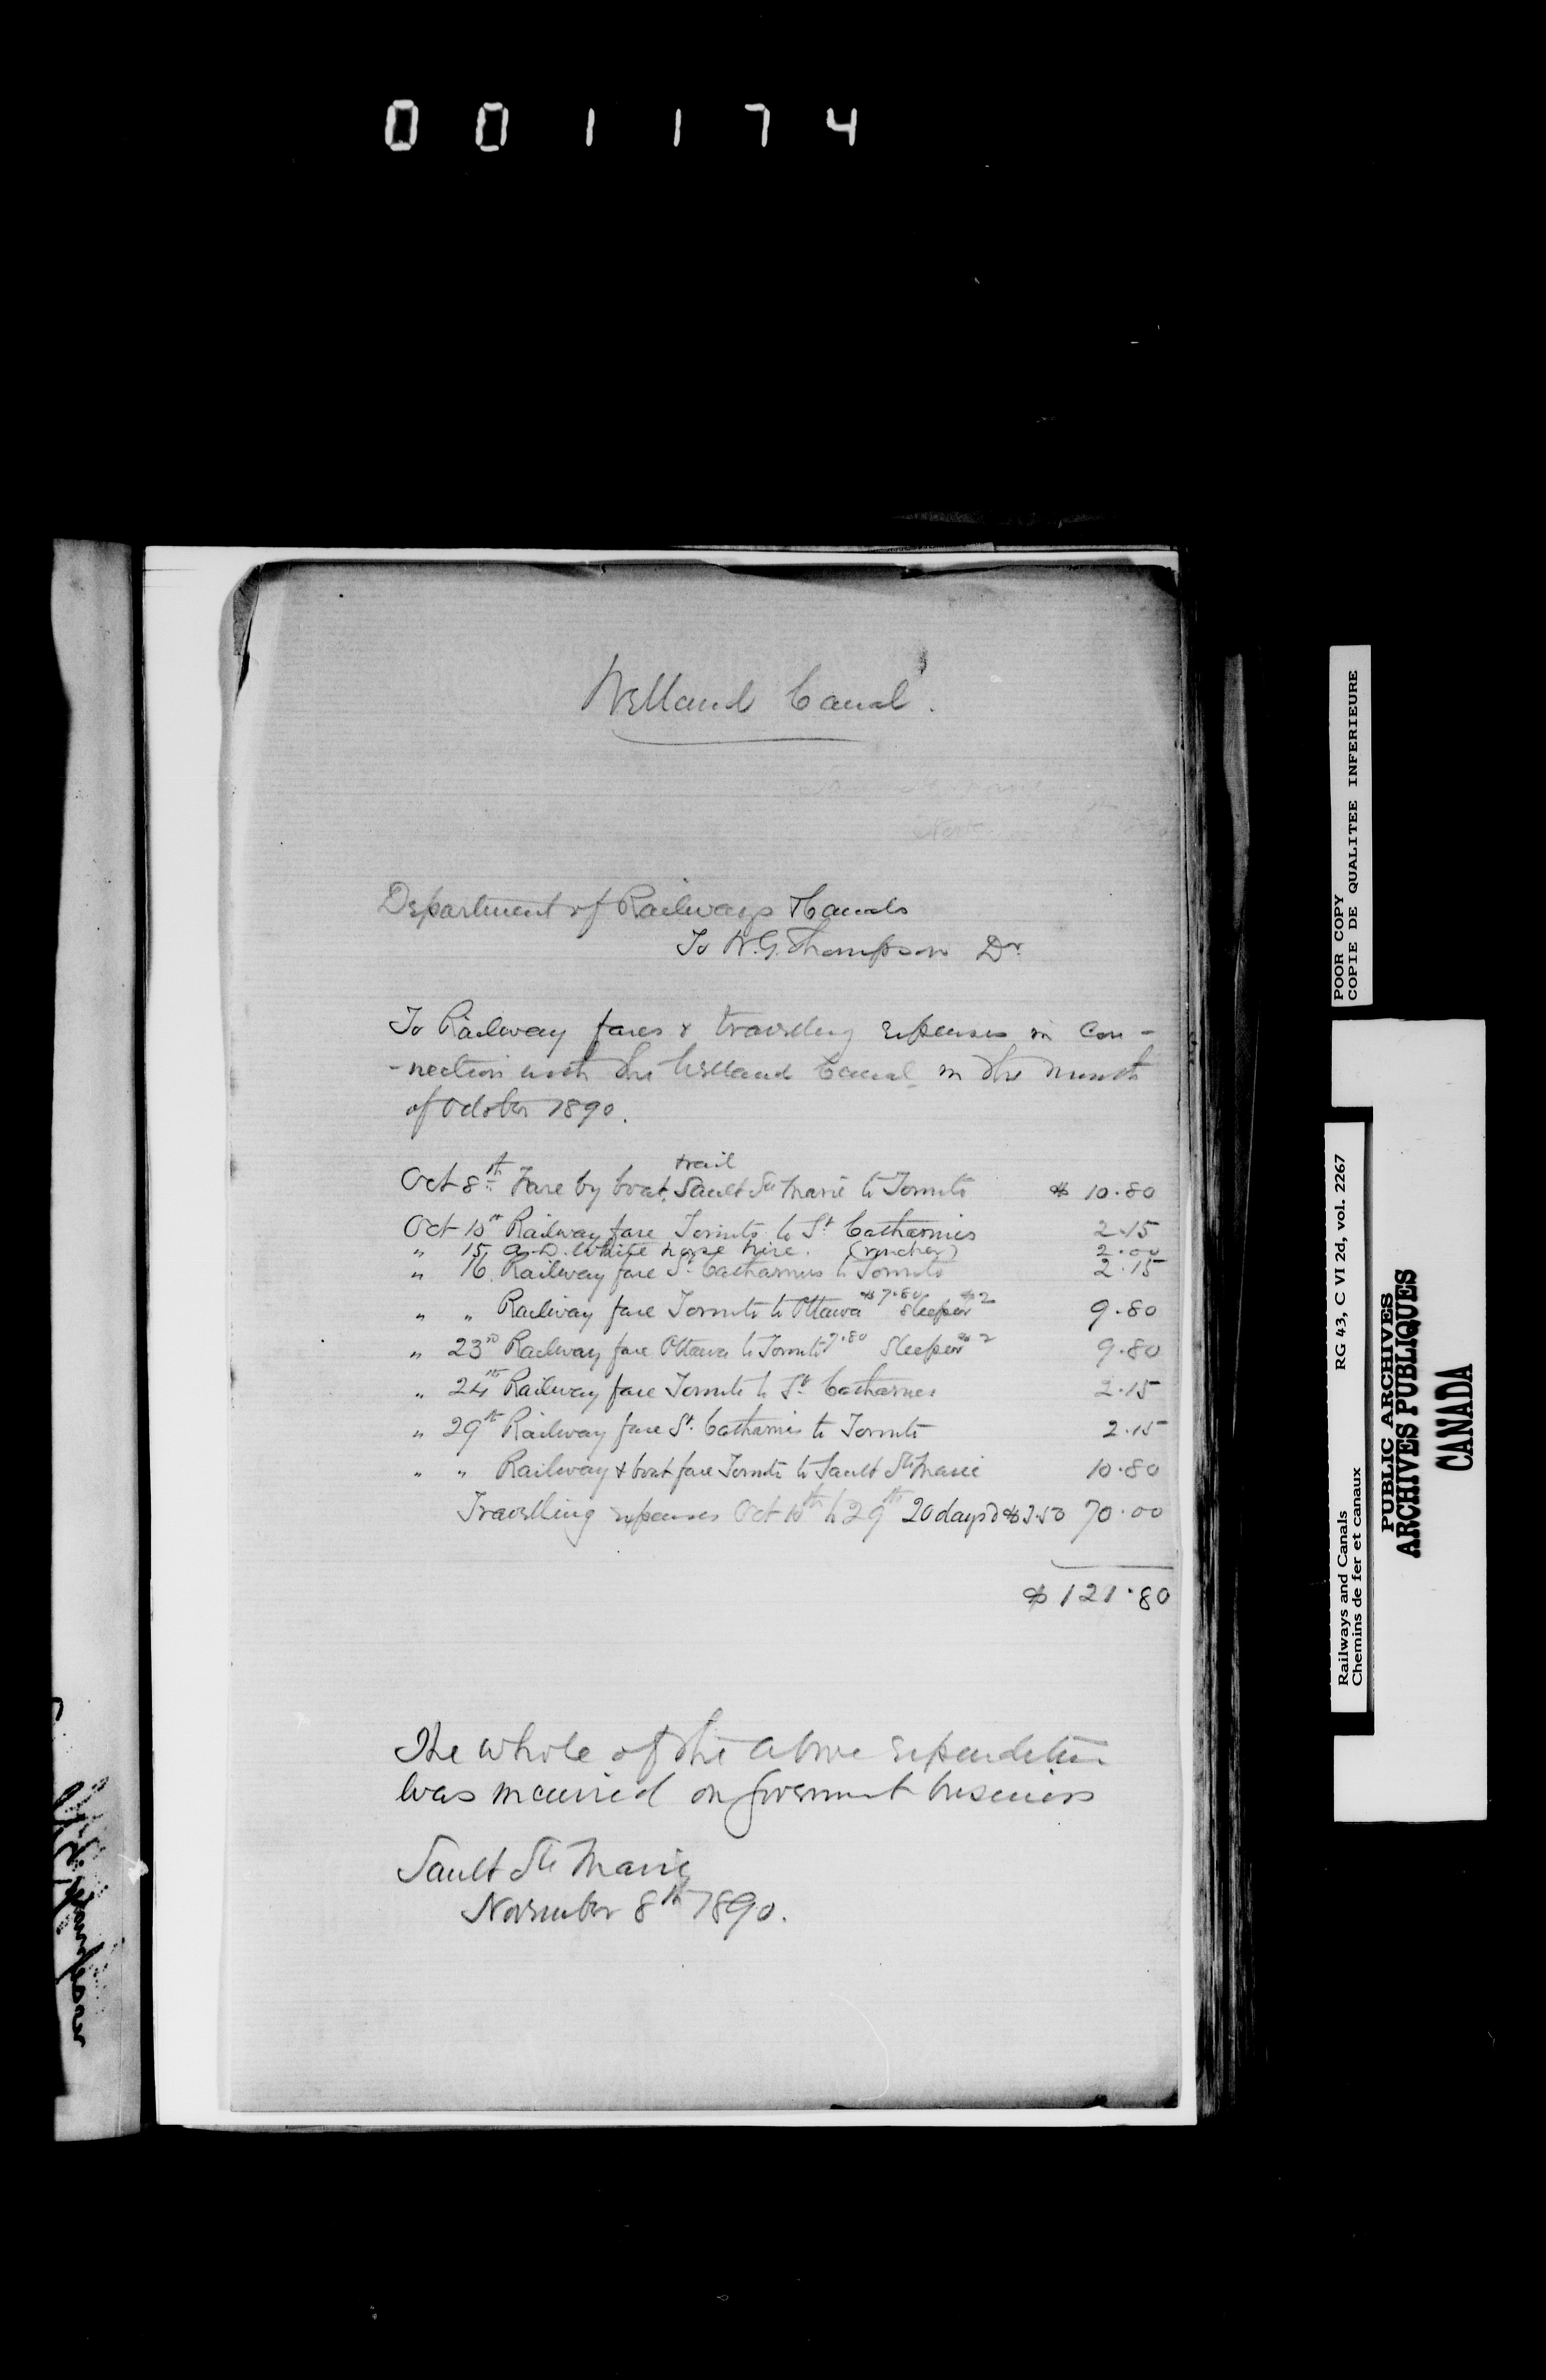 001174
Welland Canal.
Department of Railways & Canals
To W.G. Thompson Dr
To Railway fares & travelling expenses in con-
-nection with the Welland Canal in the month
of October 1890.
& rail
Oct 8th Fare by boat, Sault Ste Marie to Toronto $ 10.80
Oct 10th Railway fare Toronto to St Catharines 2.15
" 15, A.D. White horse hire. (voucher) 2.00
" 16. Railway fare St. Catharines to Toronto 2.15
" " Railway fare Toronto to Ottawa $7.80 Sleeper $2 9.80
" 23rd Railway fare Ottawa to Toronto 7.80 Sleeper $2 9.80
" 24th Railway fare Toronto to St. Catharines 2.15
" 29th Railway fare St. Catharines to Toronto 2.15
" " Railway & boat fare Toronto to Sault Ste Marie 10.80
Travelling expenses Oct 10th to 29th 20 days @ $3.50 70.00
$ 121.80
The whole of the above expenditure
was incurred on Goverment business
Sault Ste Marie
November 8th 1890.
POOR COPY
COPIE DE QUALITEE INFERIEURE
RG 43, C VI 2d, vol. 2267
Railways and Canals
Chemins de fer et canaux
PUBLIC ARCHIVES
ARCHIVES PUBLIQUES
CANADA